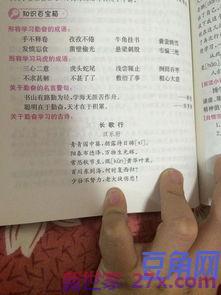 知识百宝箱
形容学习勤奋的成语:
手不释卷 孜孜不倦 牛角挂书
发愤忘食 凿壁偷光 悬梁刺股 韦编三绝
形容学习马虎的成语:
三心二意 虎头蛇尾 浅尝辄止
不求甚解 不了了之 敷衍了事 粗心大意
关于勤奋的名言警句:
书山有路勤为径,学海无涯苦作舟。
聪明在于勤奋,天才在于积累。
关于勤奋学习的古诗:
长歌行
汉乐府
青青园中葵,朝露待日晞[xī]。
阳春布德泽,万物生光辉。
常恐秋节至,焜[kūn]黄华叶衰。
百川东到海,何时复西归?
少壮不努力,老大徒伤悲!
豆角网